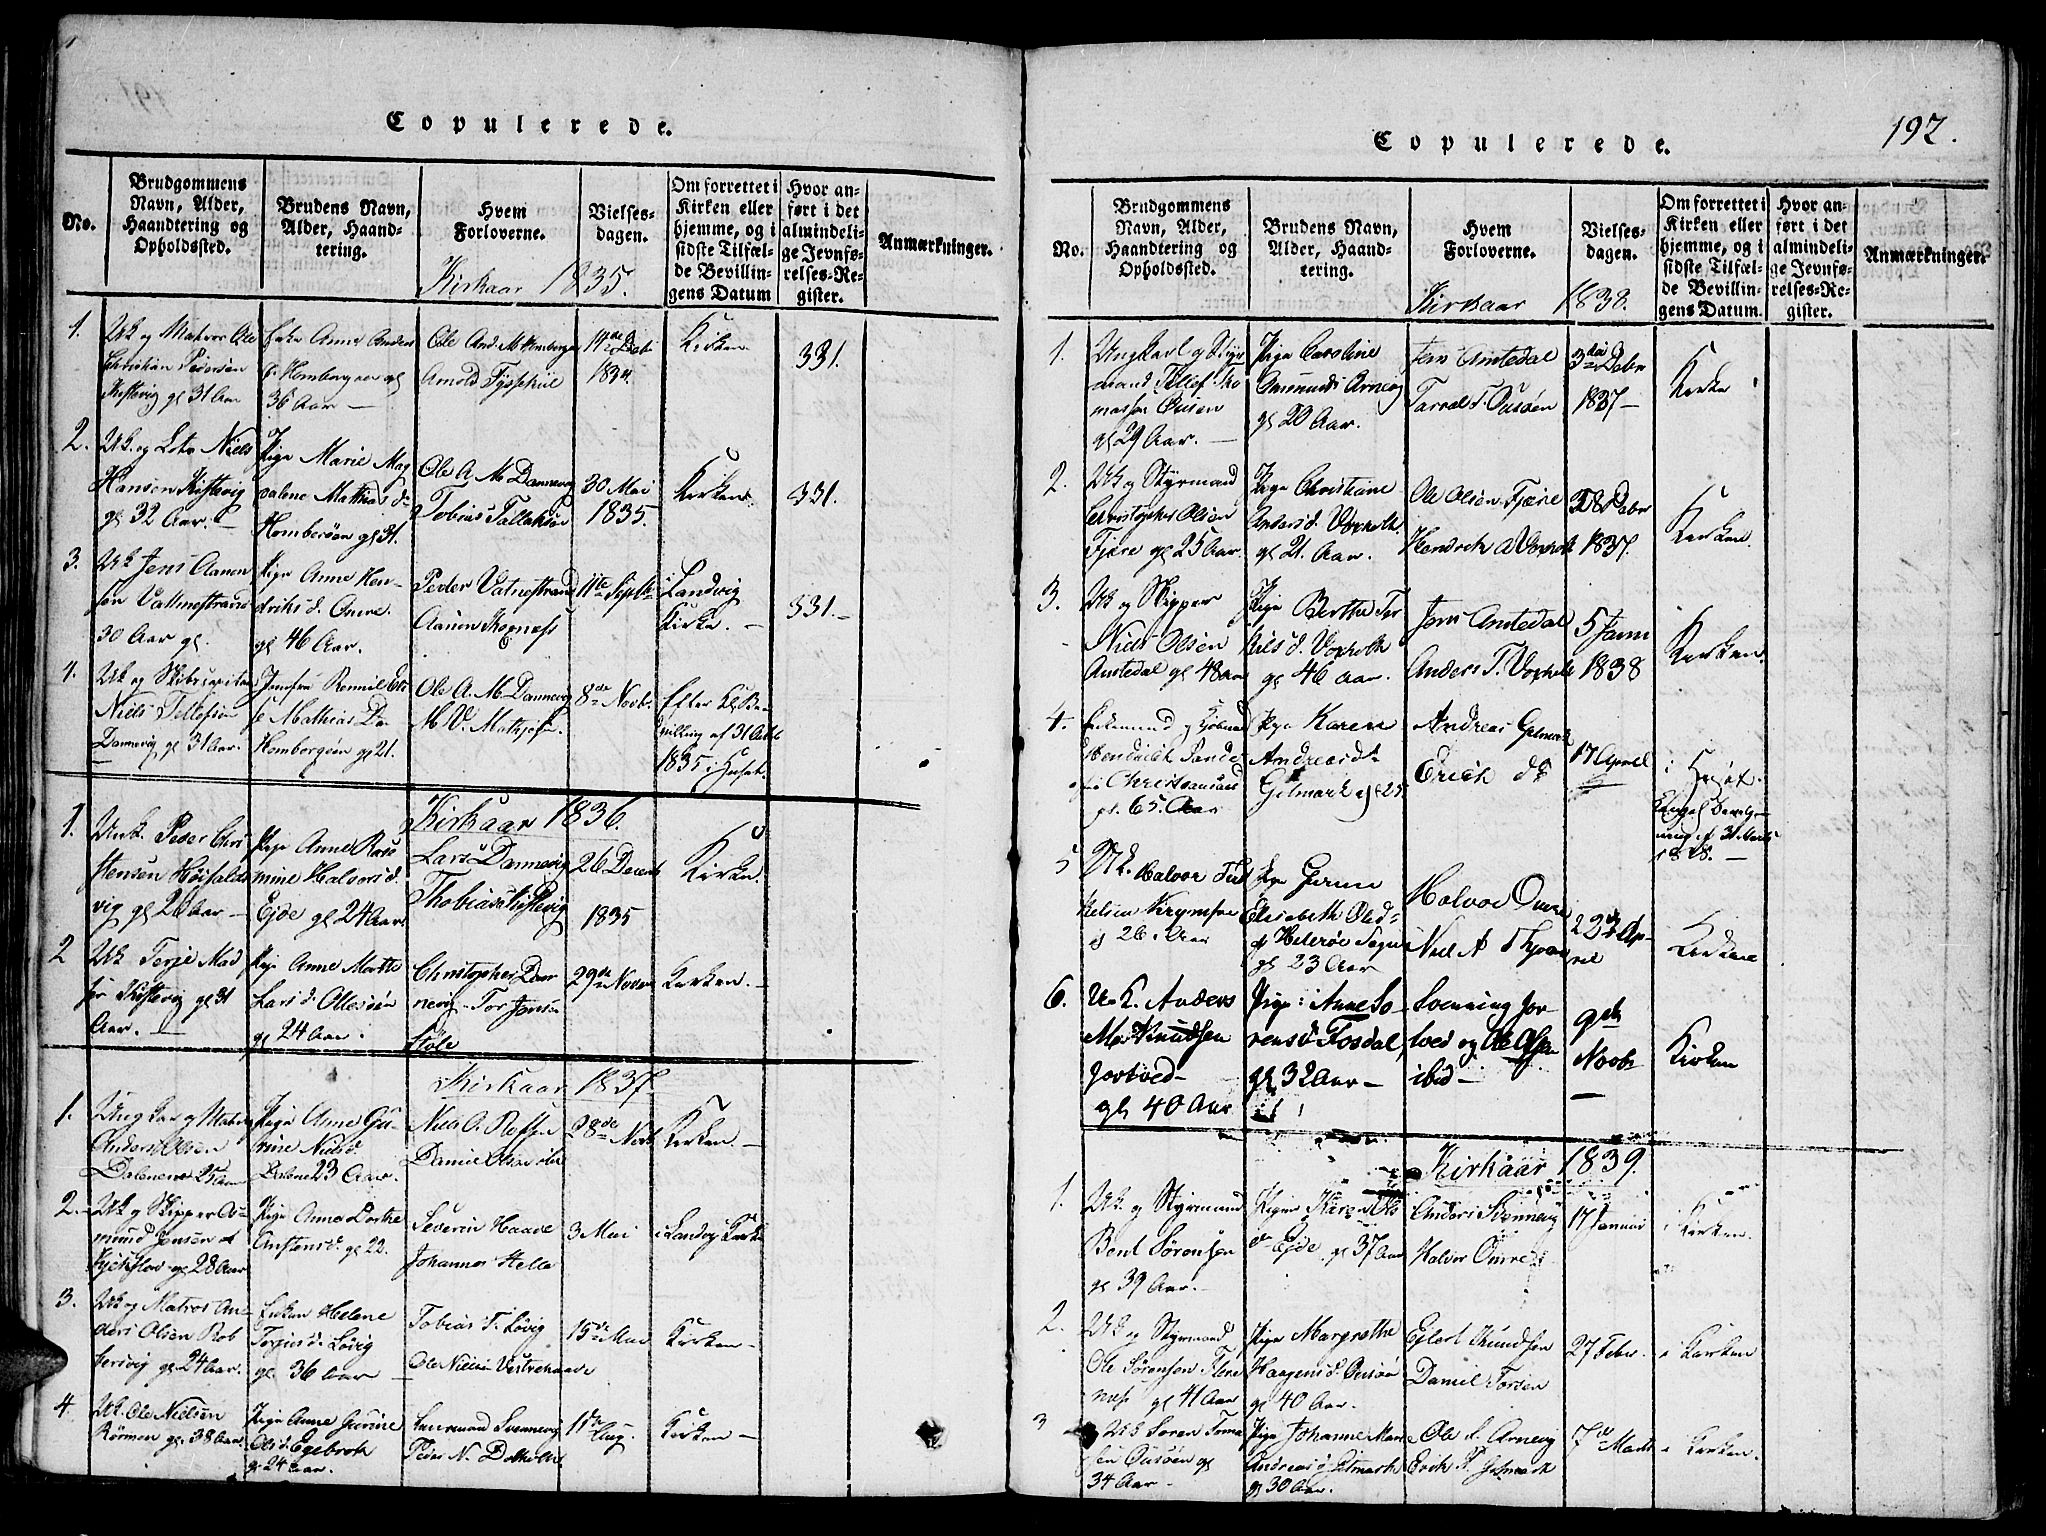 Copulerede.
No.
Brudgommens Navn, Alder, Haandtering og Opholdssted.
Brudens Navn, Alder, Haandtering.
Hvem Forloverne.
Vielsesdagen.
Om forrettet i Kirken eller hjemme, og i sidste Tilfælde Bevillingens Datum
Hvor anført i det almindelige Jevnførelses-Register.
Anmærkninger.
Kirkaar 1835.
1.
Uk og Matros Ole
Christian Pedersen
Kistevig gl 31 Aar
Enke Anne Anders
d. Homborgøen gl
36 Aar —
Ole And. M. Homborgøen
Arnold
14de Debr
1834.
Kirken
331.
2.
Uk. og Lots Niels
Hansen Kistevig
gl 32 Aar. —
Pige Marie Mag
dalene Mathias d.
Homborøen gl 31.
Ole A. M. Dannevig
Tobias Tallaksen
30 Mai
1835.
Kirken.
331.
3.
Uk Jens Aanon
sen Vatnestrand
30 Aar gl.
Pige Anne Hen-
driks d. Omre.
gl 46 Aar.
Peder Vatnestrand
Aanon
11te Septbr
i Landvig
Kirke. —
331. —
4.
Uk og
Niels Tellefsen
Dannevig gl 31 Aar.
Jomfru
Mathias Da
Homborgøen gl 21.
Ole A. M. Dannevig
M. V. Mathjesen.
8de Novbr.
Efter Kl Be-
villing af 31 Octbr
1835 i Huset.
Kirkaar 1836.
1.
Unk. Peder Chri
stensen Høifalds
vig gl 26 Aar —
Pige Anne Ras
mine Halvors d.
Ejde gl 24 Aar
Lars Dannevig
Thobias Kistevig
26 Decemb
1835
Kirken.
2
Uk Terje Mad
sen Kistevig gl 31
Aar. —
Pige Anne Marthe
Lars d. Ollesøen
gl 24 Aar.
Christopher Dan
nevig Tor Jensen
Støle
29de Novbr
Kirken. —
Kirkaar 1837
1.
Ung Kar og Matros
Anders Olsen
Dalene 25 Aar
Pige Anne Gu-
rine Niels d.
Dalene 23 Aar.
Niels O.
Daniel Olsen ibid
28de Novb.
Kirken. —
2.
Uk og Skipper As-
mund Jensen
gl 28 Aar
Pige Anne Dorthe
Anstensd. gl 22.
Severin Haave
Johannes Helle
3 Mai
i Landvig Kirke
3.
Uk og Matros An-
ders Olsen Rob
bersvig gl 24 Aar.
Enken Helene
Terjes d. Løvig
gl 36 Aar —
Tobias T. Løvig
Ole Nielsen Vestrehaave
15de Mai
Kirken —
4
Uk. Ole Nielsen
Rørmen gl 38 Aar.
Pige Anne Gurine
Ols d. Egebrok
gl 24 Aar.
Svennevig
Peder N. Dolholt
11te Aug.
Kirken —
Copulerede.
192.
No.
Brudgommens Navn, Alder, Haandtering og Opholdssted.
Brudens Navn, Alder, Haandtering.
Hvem Forloverne.
Vielsesdagen.
Om forrettet i Kirken eller hjemme, og i sidste Tilfælde Bevillingens Datum.
Hvor anført i det almindelige Jevnførelses-Register.
Anmærkninger.
Kirkaar 1838.
1.
Ungkarl og Styr
mand Tellef Tho
massen Ousøen
gl 29 Aar. —
Pige Caroline
Amunds Arnevig
gl 20 Aar.
Jens Amtedal
Tarald T. Ousøen
3die Debr
1837 —
Kirke
2.
Uk og Styrmand
Christopher Olsen
Fjære gl 25 Aar.
Pige Christiane
Anders d. Voxholt
gl 21. Aar.
Ole Olsen Fjære
Hendrik A Voxholt
28 Debr
1837.
Kirken.
3.
Uk og Skipper
Niels Olsen
Amtedal gl 48 aar
Pige Berthe Ter
kils d. Voxholt
gl 46 Aar.
Jens Amtedal
Anders T. Voxholt
5 Janr
1838
Kirken.
4.
Enkemand og Kjøbmd
Hendrick
Christiansand
gl. 65. Aar
Pige Karen
Andreas d.
Gitmark gl 25.
Andreas Gitmark
Erich do
17 April
i Huset.
Kongel. Bevilg-
ning af 31 Marts
1838. —
5
Uk. Halvor Ter
kelsen
gl 26. Aar
Pige Gurine
Elisabeth Olsd
af Sogn
gl 23 Aar
Halvor Omre
Niels A
22de Ap-
ril
Kirken
6.
U. K. Anders
Mo. Knudsen
Jortved —
gl 40 Aar
Pige: Anne So-
rensd. Fosdal,
gl 32 Aar —
Svenning Jor-
tved og Ole Olsen
ibid —
9de
Novbr
Kirken
Kirkaar 1839.
1.
Uk. og Styrmand
Bent Sørensen
gl 39 Aar. —
Pigen Karen Ols
d. Ejde gl 37 Aar
Anders Svennevig
Halvor Omre
17 Januar
i Kirken.
2.
Uk og Styrmand
Ole Sørensen
gl 41 Aar
Pige Margrethe
Haagens d. Ousøen
gl 40 Aar.
Ejlert Knudsen
Daniel Torsen
27 Febr.
i Kirken
3
Uk Søren Toma
sen Ousøen gl
34 Aar —
Pige Johanne Mari
Andreas d. Gitmark
gl 30 Aar.
Ole A. Arnevig
Erik T. Gitmark
7de Marts
i Kirken.